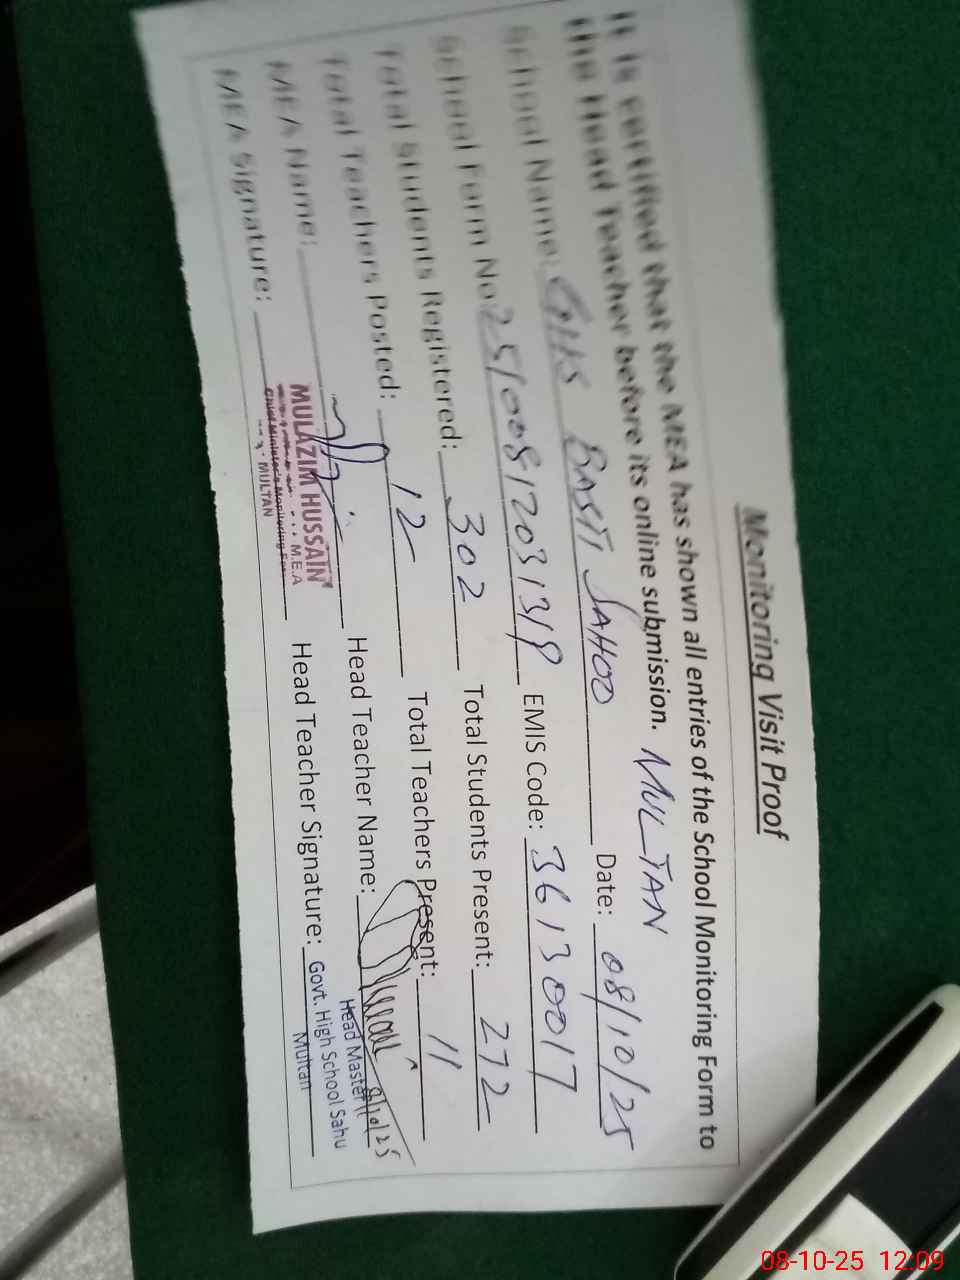 Monitoring Visit Proof
It is certified that the MEA has shown all entries of the School Monitoring Form to
the Head Teacher before its online submission. MULTAN
School Name: GHS BASTI SAHOO Date: 08/10/25
School Form No: EMIS Code: 36130017
Total Students Registered: 302 Total Students Present: 272
Total Teachers Posted: 12 Total Teachers Present: 11
MEA Name: Head Teacher Name:
MEA Signature: Head Teacher Signature:
MULAZIM HUSSAIN
M.E.A
Chief Minister's Monitoring
MULTAN
Head Master
8/10/25
Govt. High School Sahu
Multan
08-10-25 12:09